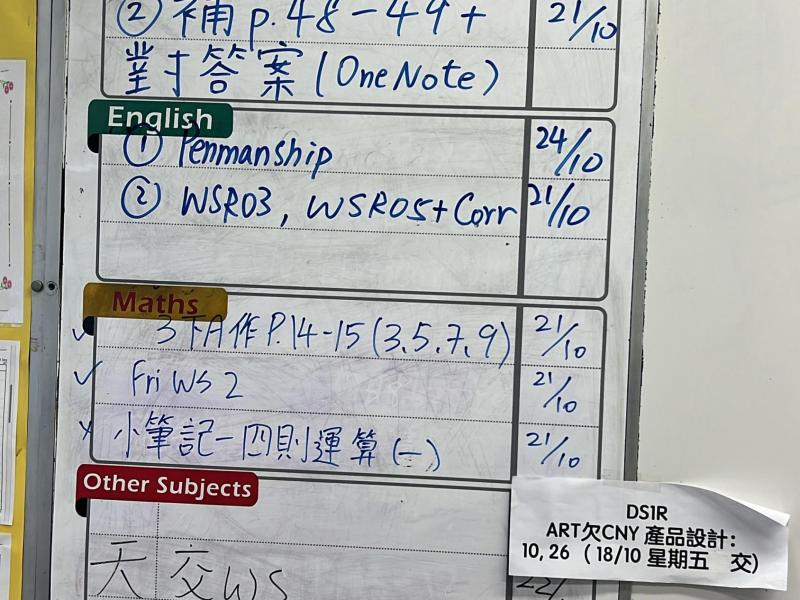 ② 補 p.48-49+ 21/10
對答案 (OneNote)
English
① Penmanship 24/10
② WSR03, WSR05+Corr 21/10
Maths
✓ 3下A作 P.14-15 (3,5,7,9) 21/10
✓ Fri WS 2 21/10
小筆記-四則運算(一) 21/10
Other Subjects
天 交WS
DS1R
ART欠CNY 產品設計:
10, 26 (18/10 星期五 交)